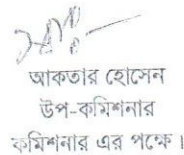 আকতার হোসেন
উপ-কমিশনার
কমিশনার এর পক্ষে।